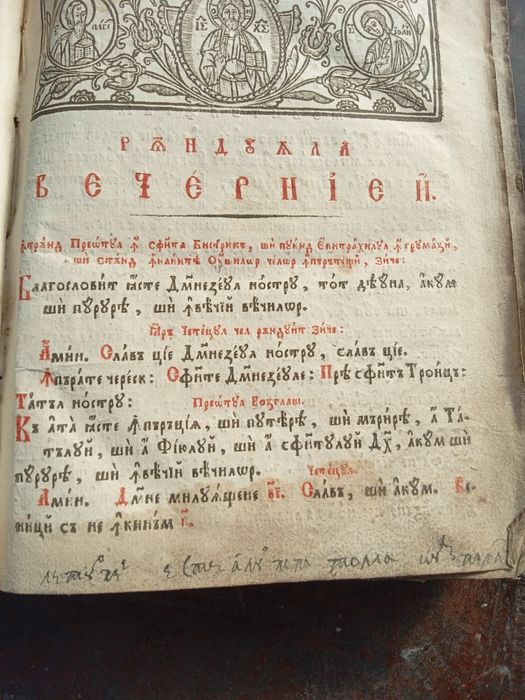 ІС ХС
РѪНДУѦЛА
ВЕЧЕ́РНІЕЙ.
Ѫтрѫнд Преѡтул ꙟ сфѫ́нта Бисѣрикъ, ши пуинд Епитрахилул ꙟ грумази,
ши стѫнд ꙟнаинтѣ Оушилѡр челѡр ꙟпърътещй, зиче:
Благословит ꙗ҆сте Дмнезеул нострꙋ, тот дѣуна, акум
ши пурурѣ, ши ꙟвечій вечилѡр.
Ꙗръ Четецул чел рѫндуит зиче:
Амин. Славъ ціе Дмнезеул нострꙋ, славъ ціе.
Ꙟпърате череск: Сфинте Дмнезеуле: Прѣ сфинтъ Троицъ:
Татъл нострꙋ: Преѡтул Возглаш.
Къ ата ꙗсте ꙟпъръціѧ, ши путѣрѣ, ши мърирѣ, а Та-
тълуй, ши а Фіюлуй, ши а сфинтулуй Дх, акум ши
пурурѣ, ши ꙟвечій вечилѡр. Четецул.
Амин. Дмне милуѧщене в҃і. Славъ, ши акум. Ве-
ници съ не ꙟкинъм г҃.